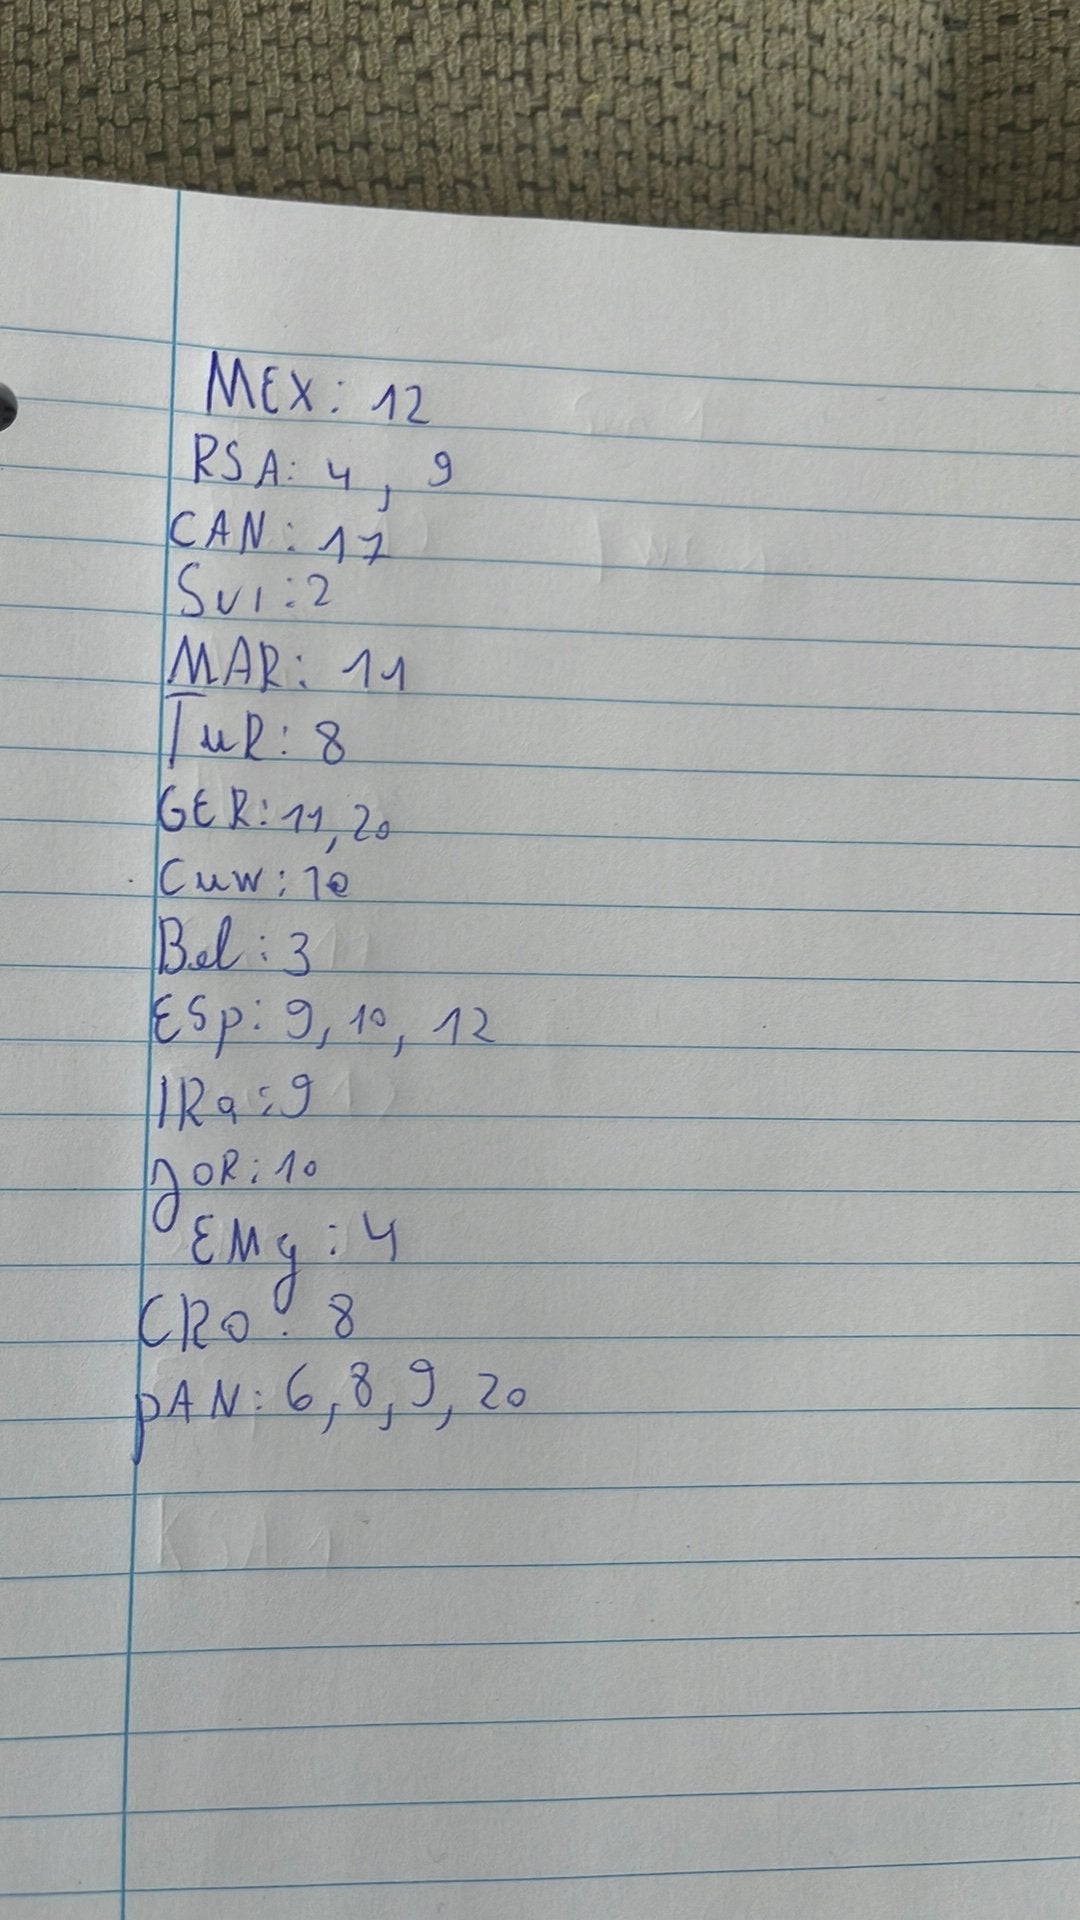 MEX: 12
RSA: 4, 9
CAN: 17
Sui: 2
MAR: 11
TuR: 8
GER: 11, 20
Cuw: 10
Bel: 3
ESp: 9, 10, 12
IRa: 9
JOR: 10
EMg: 4
CRO: 8
pAN: 6, 8, 9, 20